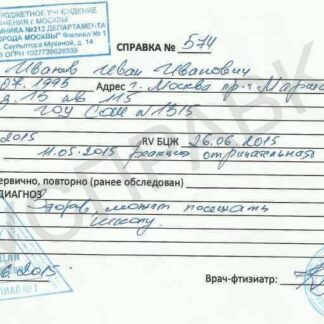 БЮДЖЕТНОЕ УЧРЕЖДЕНИЕ
АНЕНИЯ г. МОСКВЫ
ИНИКА №212 ДЕПАРТАМЕНТА
ОРОДА МОСКВЫ" Филиал № 1
Скульптора Мухиной, д. 14
ОГРН 1027739020939
СПРАВКА № 574
Иванов Иван Иванович
07.1995 Адрес: г. Москва пр-т Марша
д. 13 кв 115
ГОУ СОШ №1315
2015 RV БЦЖ 26.06.2015
11.05.2015 реакция отрицательная
ервично, повторно (ранее обследован)
ДИАГНОЗ
Здоров, может посещать
школу.
2015
Врач-фтизиатр:
ДЛЯ
ФИЛИАЛ № 1